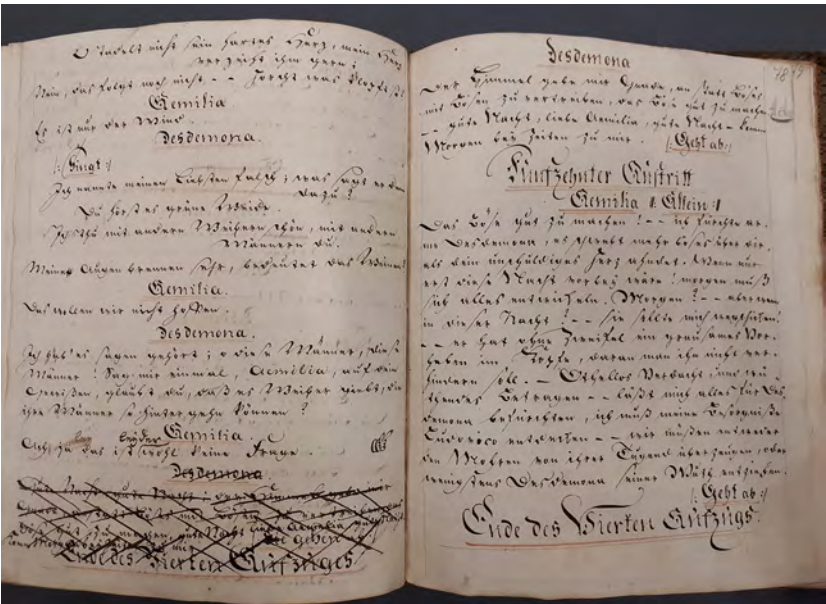 O tadelt nicht sein hartes Herz, mein Herz
verzeiht ihm gern;
Nein, das folgt noch nicht, - - Horcht was klopft so
Aemilia
Es ist nur der Wind.
Desdemona.
/: Singt :/
Ich nannte meinen Liebsten falsch; was sagt er dann
dazu?
Du hörst es grüne Weide.
Ich thu mit andern Weibern schön, mit andern
Männern du.
Meine Augen brennen sehr, bedeutet das Weinen?
Aemilia.
Das wollen wir nicht hoffen.
Desdemona.
Ich hab' es sagen gehört; o diese Männer, diese
Männer! Sag mir einmal, Aemilia, auf dein
Gewißen, glaubst du, daß es Weiber giebt, die
ihre Männer so hintergehn können?
Aemilia.
leyder
Ach, ja das ist wohl keine Frage.
Desdemona
Gute Nacht, gute Nacht; der Himmel gebe mir
Gnade,
Böse gut zu machen, gute Nacht liebe Aemilia
Sie gehen
Ende des Vierten Aufzuges
Desdemona
Der Himmel gebe mir Gnade, an statt Böses
mit Bösen zu vertreiben, das Böse gut zu machen
- - gute Nacht, liebe Aemilia, gute Nacht - komm
Morgen bey Zeiten zu mir. /: Geht ab :/
Fünfzehnter Auftritt
Aemilia /: Allein :/
Das Böse gut zu machen! - - ich fürchte ar-
me Desdemona, es schwebt mehr böses über dir,
als dein unschuldiges Herz ahndet. Wenn nur
erst diese Nacht vorbey wäre! morgen muß
sich alles entwickeln. Morgen? - - aber wenn
in dieser Nacht? - - Sie sollte mich wegschicken!
- - er hat ohne Zweifel ein grausames Vor-
haben im Kopfe, daran man ihn nicht ver-
hindern soll. - Othellos Verdacht, und wü-
thendes Betragen - - läßt mich alles für Des-
demona befürchten, ich muß meine Besorgniße
Ludovico entdecken - - wir müßen entweder
den Mohren von ihrer Tugend überzeugen, oder
wenigstens Desdemona seiner Wuth entziehen.
/: Geht ab :/
Ende des Vierten Aufzugs.